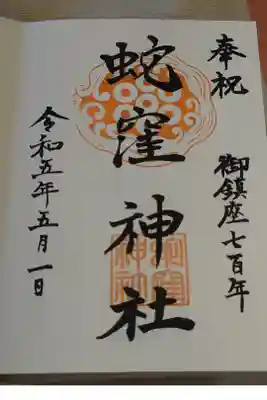 奉祝
御鎮座七百年
蛇窪神社
令和五年五月一日
蛇窪神社